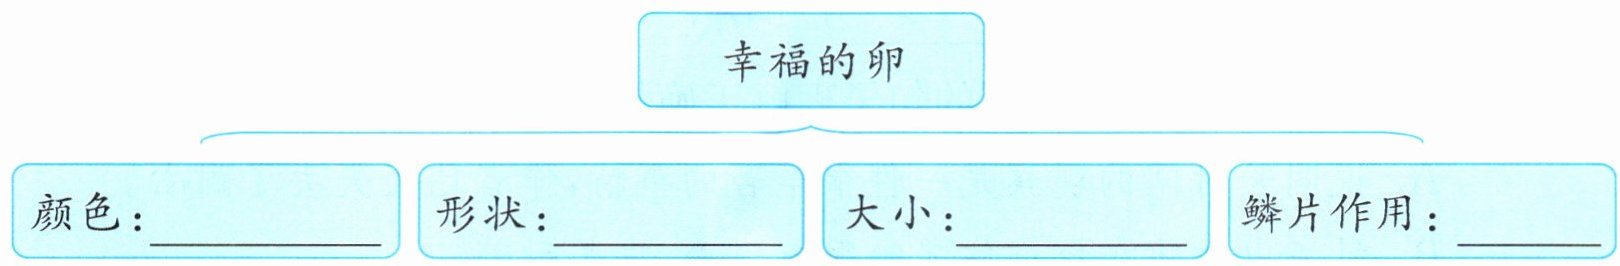 幸福的卵
颜色：
形状：
大小：
鳞片作用：